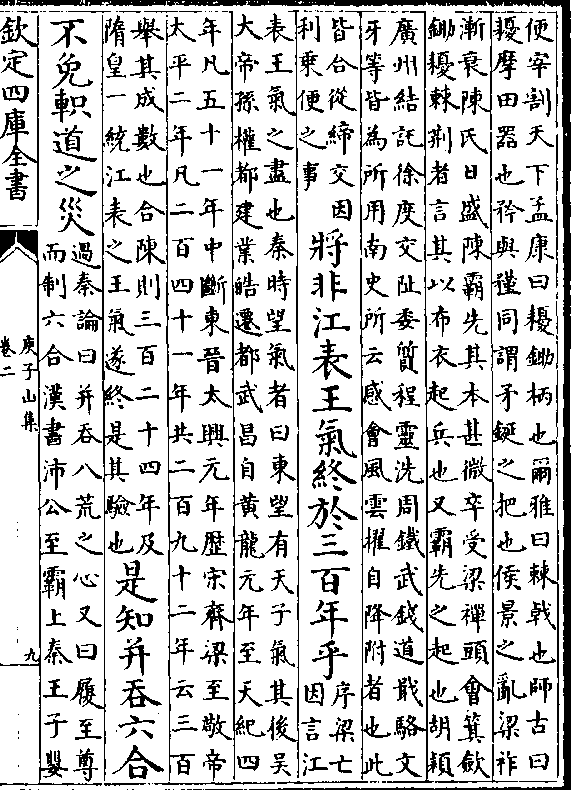 便宰割天下孟康曰耰鋤柄也爾雅曰棘戟也師古曰
耰摩田器也矜與𥎊同謂矛鋋之把也侯景之亂梁祚
漸衰陳氏日盛陳霸先其本甚微卒受梁禪頭會箕歛
鋤耰棘荆者言其以布衣起兵也又霸先之起也胡穎
廣州結託徐度交阯委質程靈洗周鐵武錢道戢駱文
牙等皆為所用南史所云感會風雲擢自降附者也此
皆合從締交因
利乘便之事
將非江表王氣終於三百年乎
序梁亡
因言江
表王氣之盡也秦時望氣者曰東望有天子氣其後吳
大帝孫權都建業皓遷都武昌自黄龍元年至天紀四
年凡五十一年中斷東晉太興元年歷宋齊梁至敬帝
太平二年凡二百四十一年共二百九十二年云三百
舉其成數也合陳則三百二十四年及
隋皇一統江表之王氣遂終是其驗也
是知并吞六合
不免軹道之災
過秦論曰并吞八荒之心又曰履至尊
而制六合漢書沛公至霸上秦王子嬰
欽定四庫全書
庚子山集
卷二
九